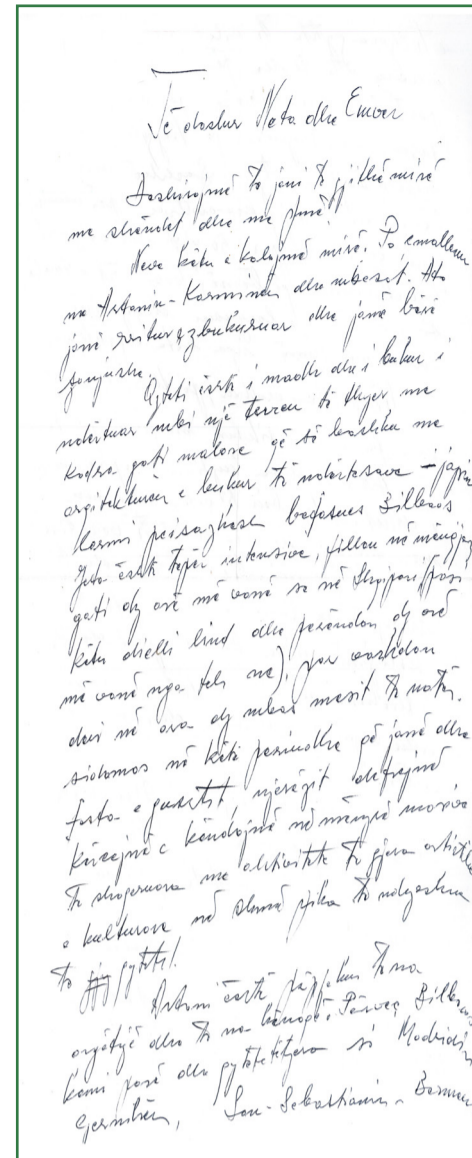 Të dashur Neta dhe Enver
Dëshirojmë të jeni të gjithë mirë
me shëndet dhe me punë!
Neve këtu e kalojmë mirë. Po çmallemi
me Artanin-Karminën dhe mbesat. Ato
janë rritur, zbukuruar dhe janë bërë
Qyteti është i madh dhe i bukur i
ndërtuar mbi një terren të thyer me
kodra gati malore që së bashku me
arqitekturën e bukur të ndërtesave - japin
peisazhin Bilbaos
Jeta është tepër intensive, fillon në mëngjes
gati dy orë më vonë se në Shqipëri (pasi
këtu dielli lind dhe perëndon dy orë
më vonë nga tek ne), por vazhdon
deri në ora dy mbas mesit të natës.
sidomos në këtë periudhë që janë dhe
festa e gushtit njerëzit dëfrejnë
kërcejnë e këndojnë në mënyrë masive
të shoqëruara me aktivitete të gjera artistike
e kulturore në shumë pika të ndryshme
të qytetit.
Artani është përpjekur të na
argëtojë dhe të na kënaqë. Përveç Bilbaos
kemi parë dhe qytete tjera si Madridin
Gernikën, San-Sebastianin-